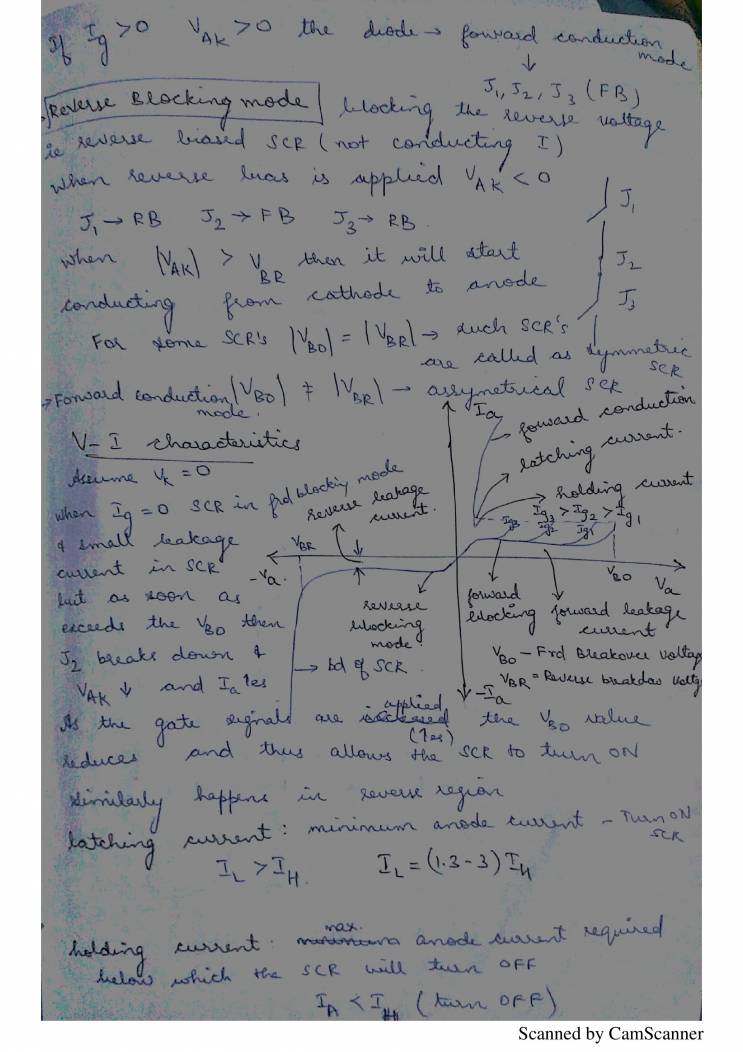 If Ig >0 VAK >0 the diode → forward conduction mode
↓
J1, J2, J3 (FB)
Reverse Blocking mode blocking the reverse voltage
ie reverse biased SCR (not conducting I)
when reverse bias is applied VAK < 0
J1 → RB J2 → FB J3 → RB
J1
J2
J3
when |VAK| > VBR then it will start
conducting from cathode to anode
For some SCR's |VBO| = |VBR| → such SCR's
are called as symmetric SCR
→ Forward conduction mode. |VBO| ≠ |VBR| → assymetrical SCR
V-I characteristics
Assume VK = 0
when Ig = 0 SCR in frd blocking mode
& small leakage
current in SCR
but as soon as
exceeds the VBO then
J2 breaks down &
VAK ↓ and Ia ↑es
Ia
forward conduction
latching current.
holding current
Ig3 > Ig2 > Ig1
Ig3 Ig2 Ig1
reverse leakage current.
VBR
-Va.
VBO
Va
reverse blocking mode
forward blocking
forward leakage current
→ bd of SCR
VBO - Frd Breakover voltage
VBR = Reverse breakdow voltg
-Ia
As the gate signals are applied (↑es) the VBO value
reduces and thus allows the SCR to turn ON
similarly happens in reverse region
latching current: minimum anode current - Turn ON SCR
IL > IH. IL = (1.3 - 3) IH
holding current: max. anode current required
below which the SCR will turn OFF
IA < IH (turn OFF)
Scanned by CamScanner